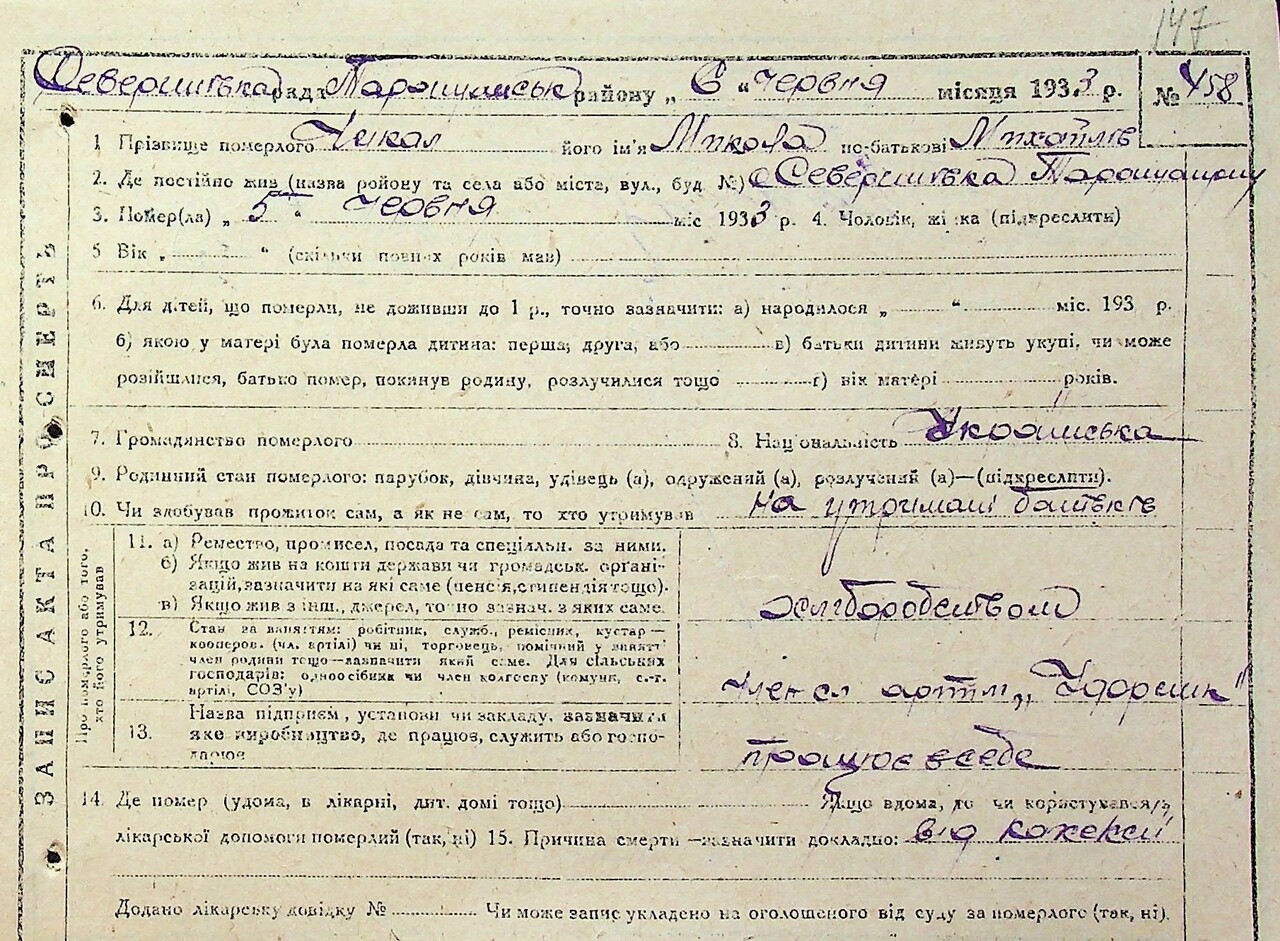 147
Северинівська рада Таращанськ району „ 6 “ червня місяця 1933 р. № 458
1 Прізвище померлого Чекал його ім'я Микола по-батькові Михайлів
2. Де постійно жив (назва району та села або міста, вул., буд №) с Северинівка Таращанську
3. Помер(ла) „ 5 “ червня міс 1933 р. 4. Чоловік, жінка (підкреслити)
5 Вік „ “ (скільки повних років мав)
6. Для дітей, що померли, не доживши до 1 р., точно зазначити: а) народилося „ “ міс. 193 р.
б) якою у матері була померла дитина: перша; друга, або в) батьки дитини живуть укупі, чи може
розійшлися, батько помер, покинув родину, розлучилися тощо г) вік матері років.
7. Громадянство померлого 8. Національність Українська
9. Родинний стан померлого: парубок, дівчина, удівець (а), одружений (а), розлучений (а)—(підкреслити).
10. Чи здобував прожиток сам, а як не сам, то хто утримував на утримані батьків
ЗАПИС АКТА ПРО СМЕРТЬ
Про померлого або того, хто його утримував
11. а) Ремество, промисел, посада та спеціяльн. за ними.
б) Якщо жив на кошти держави чи громадськ. органі-
зацій, зазначити на які саме (пенсія, стипендія тощо).
в) Якщо жив з інш., джерел, точно зазнач. з яких саме.
хліборобством
12. Стан за заняттям: робітник, служб., ремісник, кустар—
кооперов. (чл. артілі) чи ні, торговець, помічний у занятті
член родини тощо—зазначити який саме. Для сільських
господарів: одноосібник чи член колгоспу (комуни, с.-г.
артілі, СОЗ'у)
член сл артілі „Ударник"
13. Назва підприєм, установи чи закладу, зазначити
яке виробництво, де працює, служить або госпо-
дарює
працює в себе
14. Де помер (удома, в лікарні, дит. домі тощо) Якщо вдома, то чи користувався/ь
лікарської допомоги померлий (так, ні) 15. Причина смерти—зазначити докладно: від кахексії
Додано лікарську довідку № Чи може запис укладено на оголошеного від суду за померлого (так, ні).